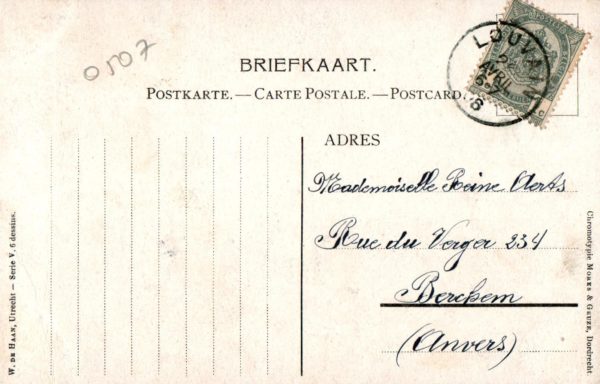 0507
BRIEFKAART.
POSTKARTE. — CARTE POSTALE. — POSTCARD.
LOUVAIN
AVRIL
ADRES
Mademoiselle Reine Aerts
Rue du Verger 234
Berchem
(Anvers)
W. DE HAAN, Utrecht — Serie V. 6 dessins.
Chromotypie MORKS & GEUZE, Dordrecht